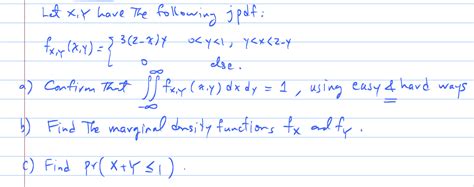 Let X,Y have the following jpdf:
f_{X,Y}(x,y) = { 3(2-x)y   0<y<1, y<x<2-y
0   else.
a) Confirm that ∫∫_{-∞}^{∞} f_{X,Y}(x,y) dx dy = 1, using easy & hard ways
b) Find the marginal density functions f_X and f_Y.
c) Find pr(X+Y≤1).